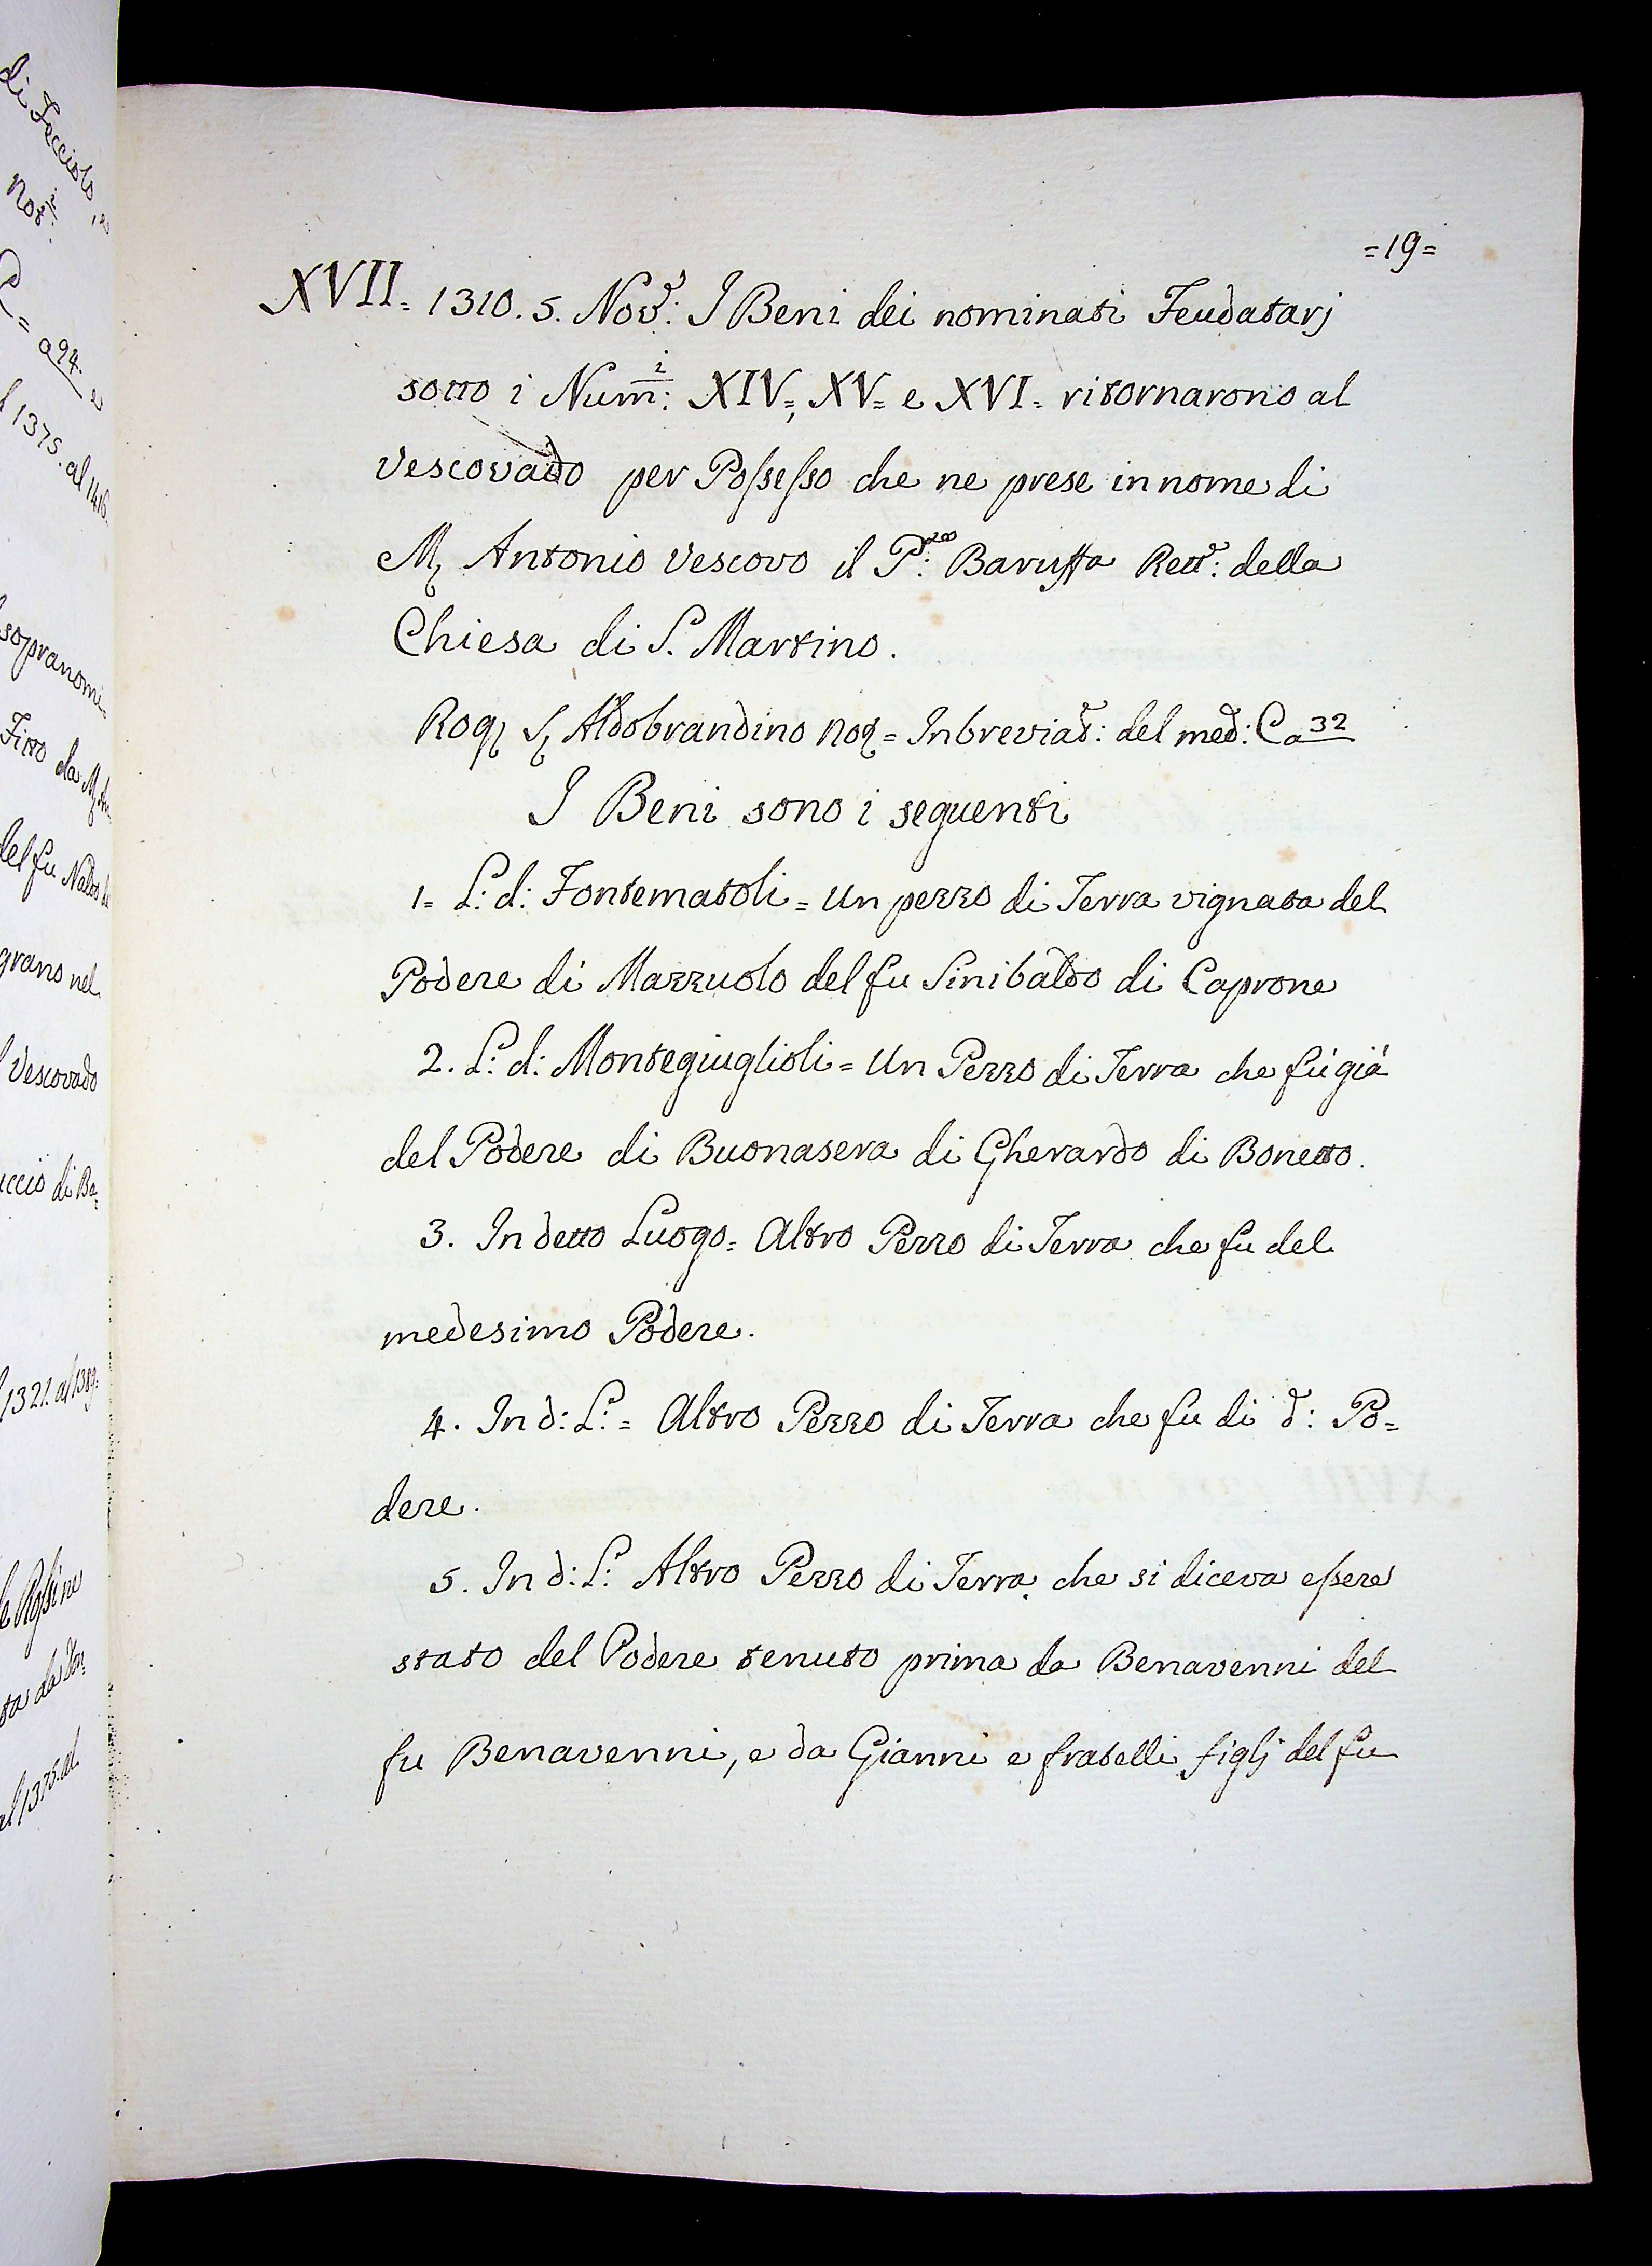 =19=
XVII= 1310. 5. Nov.e: I Beni dei nominati Feudatarj
sotto i Num:i XIV=, XV= e XVI= ritornarono al
Vescovado per Possesso che ne prese in nome di
M. Antonio Vescovo il P.re: Baruffa Rett.e: della
Chiesa di S. Martino.
Rog. S. Aldobrandino Not. = Inbreviat: del med: Ca 32
I Beni sono i seguenti
1= L: d: Fontematoli = Un pezzo di Terra vignata del
Podere di Mazzuolo del fu Sinibaldo di Caprone
2. L: d: Montegiuglioli = Un Pezzo di Terra che fù già
del Podere di Buonasera di Gherardo di Bonetto.
3. In detto Luogo = Altro Pezzo di Terra che fu del
medesimo Podere.
4. In d: L: = Altro Pezzo di Terra che fu di d: Po=
dere.
5. In d: L: Altro Pezzo di Terra che si diceva essere
stato del Podere tenuto prima da Benavenni del
fu Benavenni, e da Gianni e fratelli figlj del fu